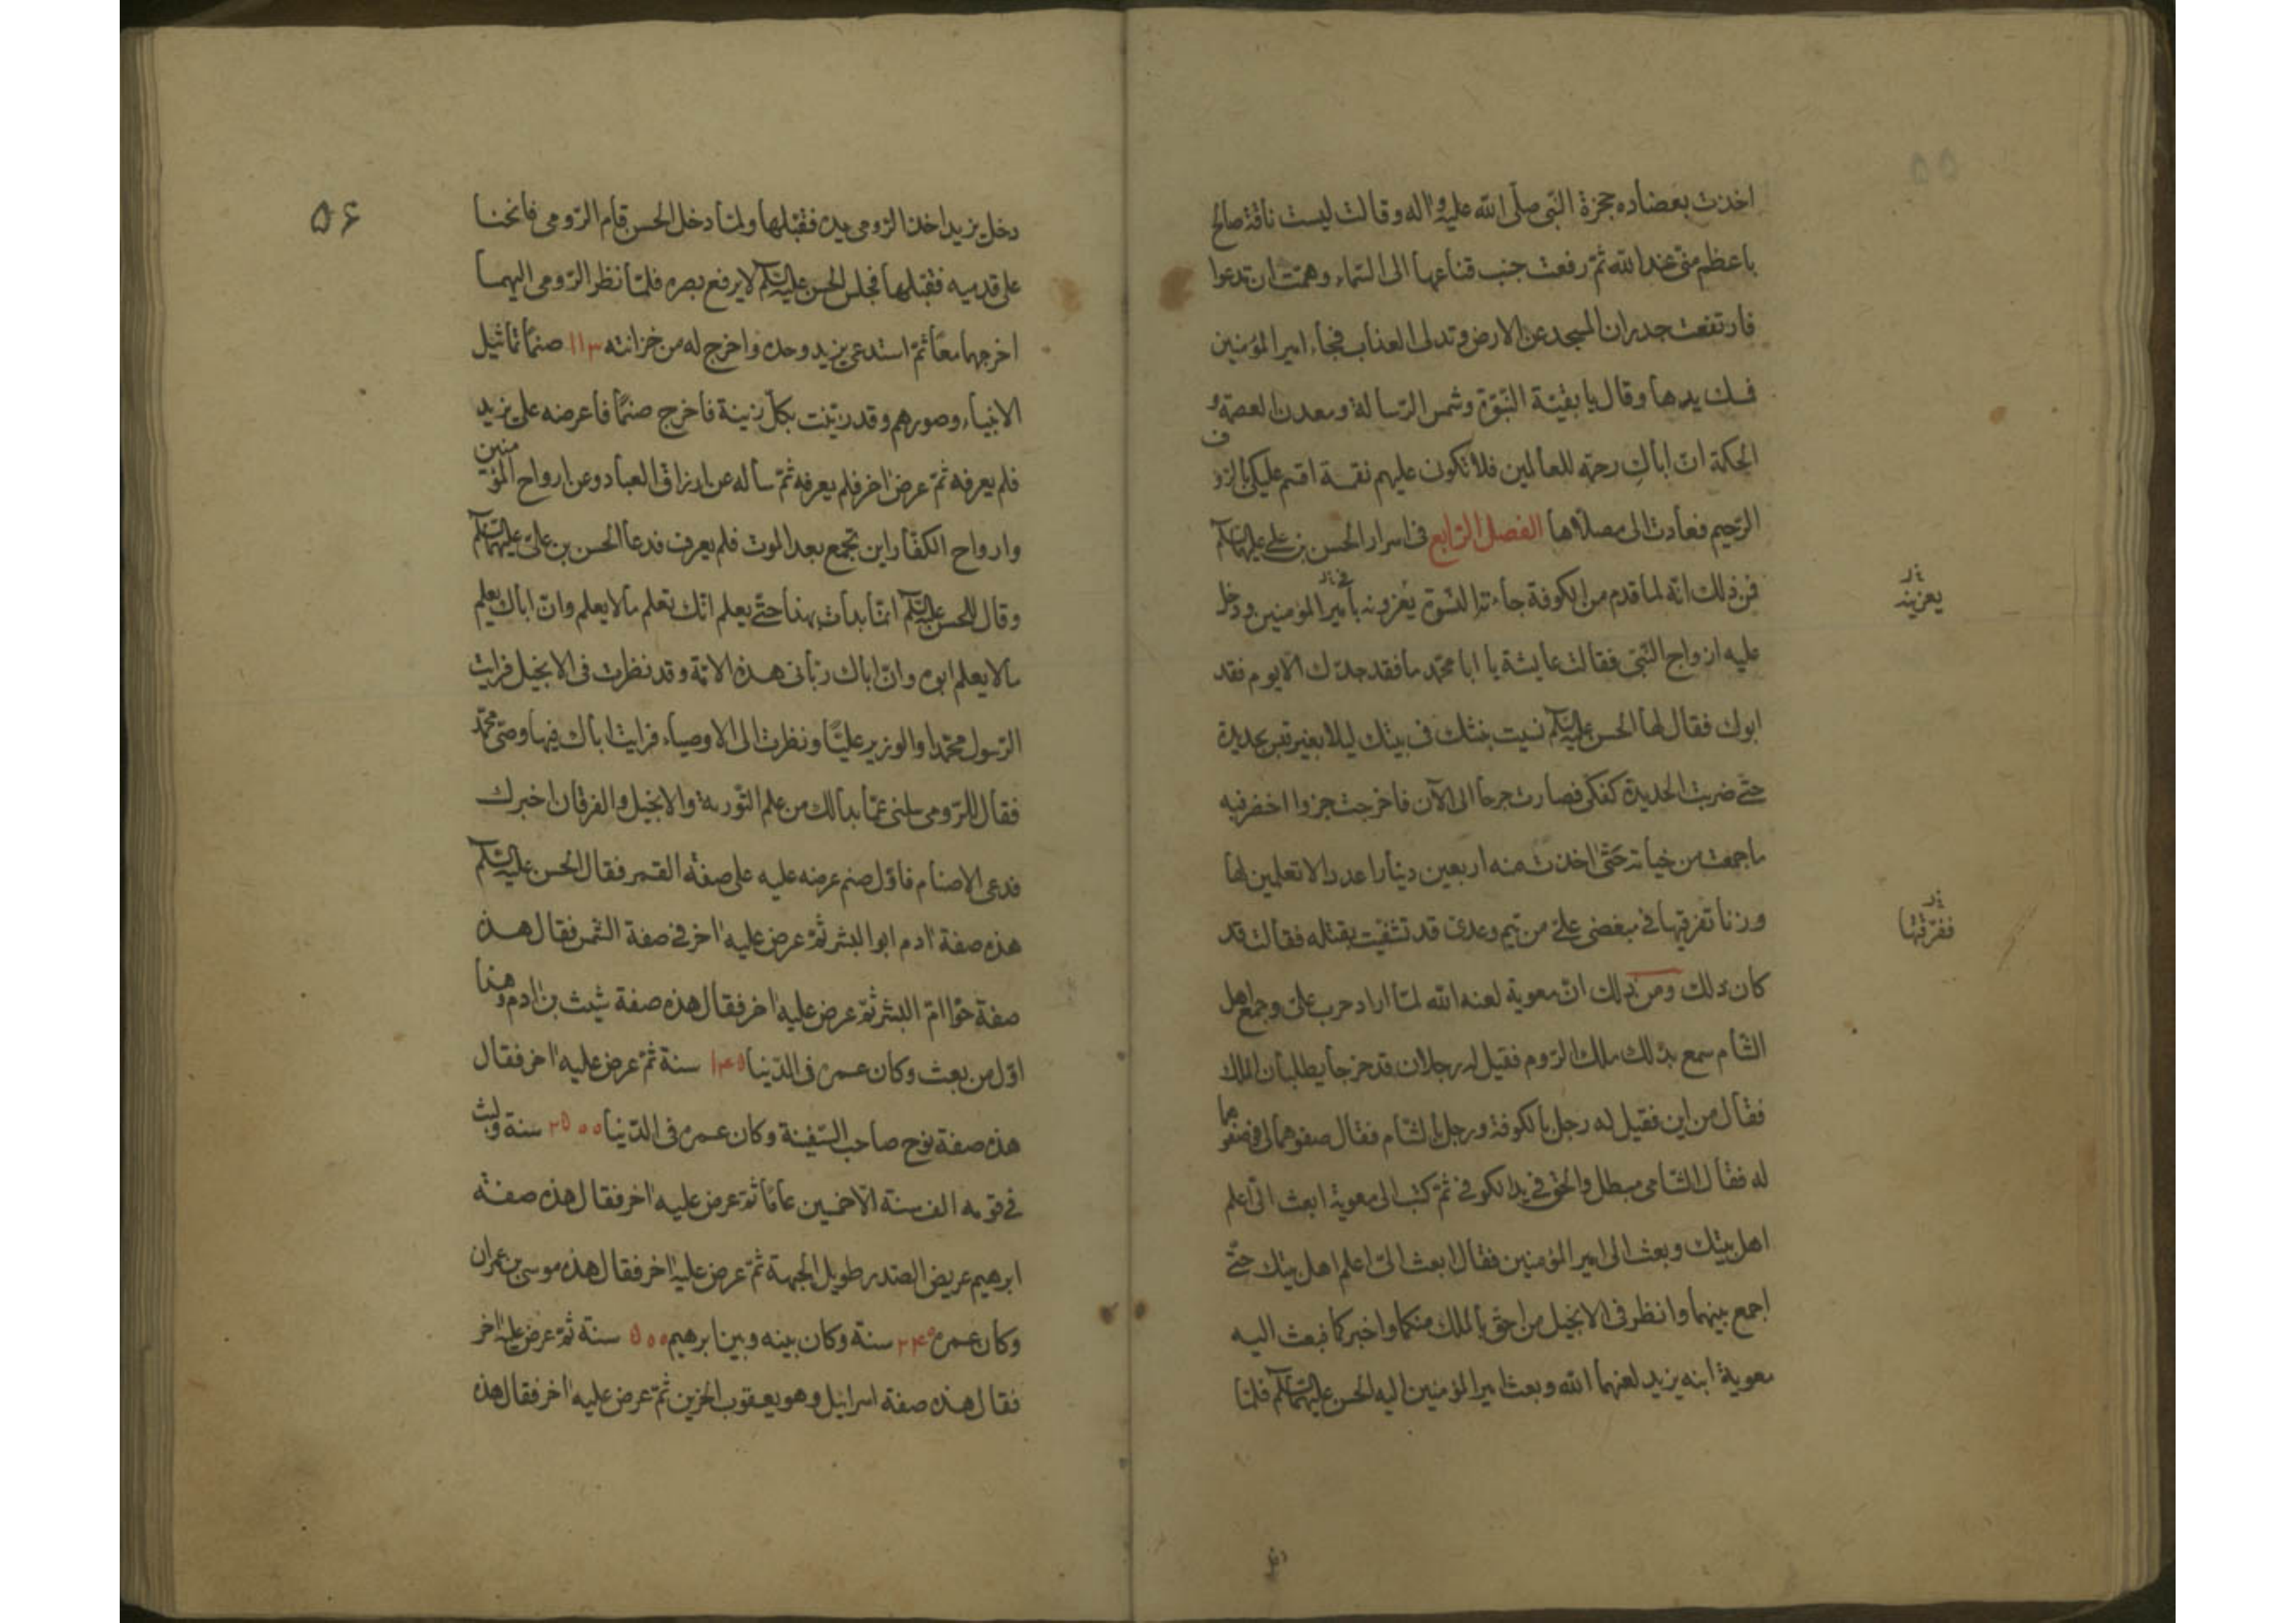 ۵۵
اخذت بعضاده حجرة النّبی صلّی الله علیه و اله وقالت لیست ناقة صالح
باعظم منّی عند الله ثمّ رفعت جنب قناعها الی السّماء وهمّت ان تدعوا
فارتفعت جدران المسجد عن الارض وتدلی العذاب فجاء امیر المؤمنین
فمسك یدها وقال یا بقیّة النّبوّة وشمس الرّسالة ومعدن العصمة و
الحکمة انّ اباك رحمة للعالمین فلا تکونی علیهم نقمة اقسم علیك بالرّؤف
الرّحیم فعادت الی مصلّاها الفصل الرّابع فی اسرار الحسن بن علی علیهماالسّلام
فمن ذلك انّه لما قدم من الکوفة جاءته النّسوة یعزونه بامیر المؤمنین ودخل
یعزینه
علیه ازواج النّبی فقالت عایشة یا ابا محمّد ما فقد جدّك الّا یوم فقد
ابوك فقال لها الحسن علیه السّلام نسیت نبشك فی بیتك لیلا بغیر قبس بحدیدة
حتّی ضربت الحدیدة کفك فصارت جرحا الی الآن فاخرجت جزوا اخضر فیه
ما جمعت من خیانة حتّی اخذت منه اربعین دینارا عددا لا تعلمین لها
وزنا تفرقیها فی مبغضی علیّ من تیم وعدی قد تشفّیت بقتله فقالت قد
ففرّقتها
کان ذلك ومن ذلك انّ معویة لعنه الله لمّا اراد حرب علیّ وجمع اهل
الشّام سمع بذلك ملك الرّوم فقیل له رجلان قد خرجا یطلبان الملك
فقال من این فقیل له رجل بالکوفة ورجل بالشّام فقال صفوهما لی فوصفوهما
له فقال الشّامی مبطل والحق فی ید الکوفی ثمّ کتب الی معویة ابعث الیّ اعلم
اهل بیتك وبعث الی امیر المؤمنین فقال ابعث الیّ اعلم اهل بیتك حتّی
اجمع بینهما وانظر فی الانجیل من احق بالملك منکما واخبرکما فبعث الیه
معویة ابنه یزید لعنهما الله وبعث امیر المؤمنین الیه الحسن علیهما السّلام فلمّا
دخل
۵۶
دخل یزید اخذ الرّومی یده فقبّلها ولمّا دخل الحسن قام الرّومی فانحنا
علی قدمیه فقبّلها فجلس الحسن علیه السّلام لا یرفع بصره فلمّا نظر الرّومی الیهما
اخرجهما معًا ثمّ استدعی یزید وحده واخرج له من خزانته ۱۱۳ صنمًا تماثیل
الانبیاء وصورهم وقد زیّنت بکلّ زینة فاخرج صنمًا فاعرضه علی یزید
فلم یعرفه ثمّ عرض اخر فلم یعرفه ثمّ سأله عن ارزاق العباد وعن ارواح المؤمنین
وارواح الکفّار این تجمع بعد الموت فلم یعرف فدعا الحسن بن علیّ علیهما السّلام
وقال للحسن علیه السّلام انّما بدأت بهذا حتّی یعلم انّك تعلم ما لا یعلم وانّ اباك یعلم
ما لا یعلم ابوه وانّ اباك ربّانی هذه الامّة وقد نظرت فی الانجیل فرایت
الرّسول محمّدا والوزیر علیًّا ونظرت الی الاوصیاء فرایت اباك فیها وصیّ محمّد
فقال للرّومی سلنی عمّا بدا لك من علم التّوریة والانجیل والفرقان اخبرك
فدعی الاصنام فاوّل صنم عرضه علیه علی صفة القمر فقال الحسن علیه السّلام
هذه صفة ادم ابو البشر ثمّ عرض علیه اخر فی صفة الشّمس فقال هذه
صفة حوّا امّ البشر ثمّ عرض علیه اخر فقال هذه صفة شیث بن ادم وهذا
اوّل من بعث وکان عمره فی الدّنیا ۱۰۴۵ سنة ثمّ عرض علیه اخر فقال
هذه صفة نوح صاحب السّفینة وکان عمره فی الدّنیا ۲۵۰۰ سنة ولبث
فی قومه الف سنة الّا خمسین عامًا ثمّ عرض علیه اخر فقال هذه صفة
ابرهیم عریض الصّدر طویل الجبهة ثمّ عرض علیه اخر فقال هذه موسی بن عمران
وکان عمره ۲۴۰ سنة وکان بینه وبین ابرهیم ۵۰۰ سنة ثمّ عرض علیه اخر
فقال هذه صفة اسرائیل وهو یعقوب الحزین ثمّ عرض علیه اخر فقال هذه